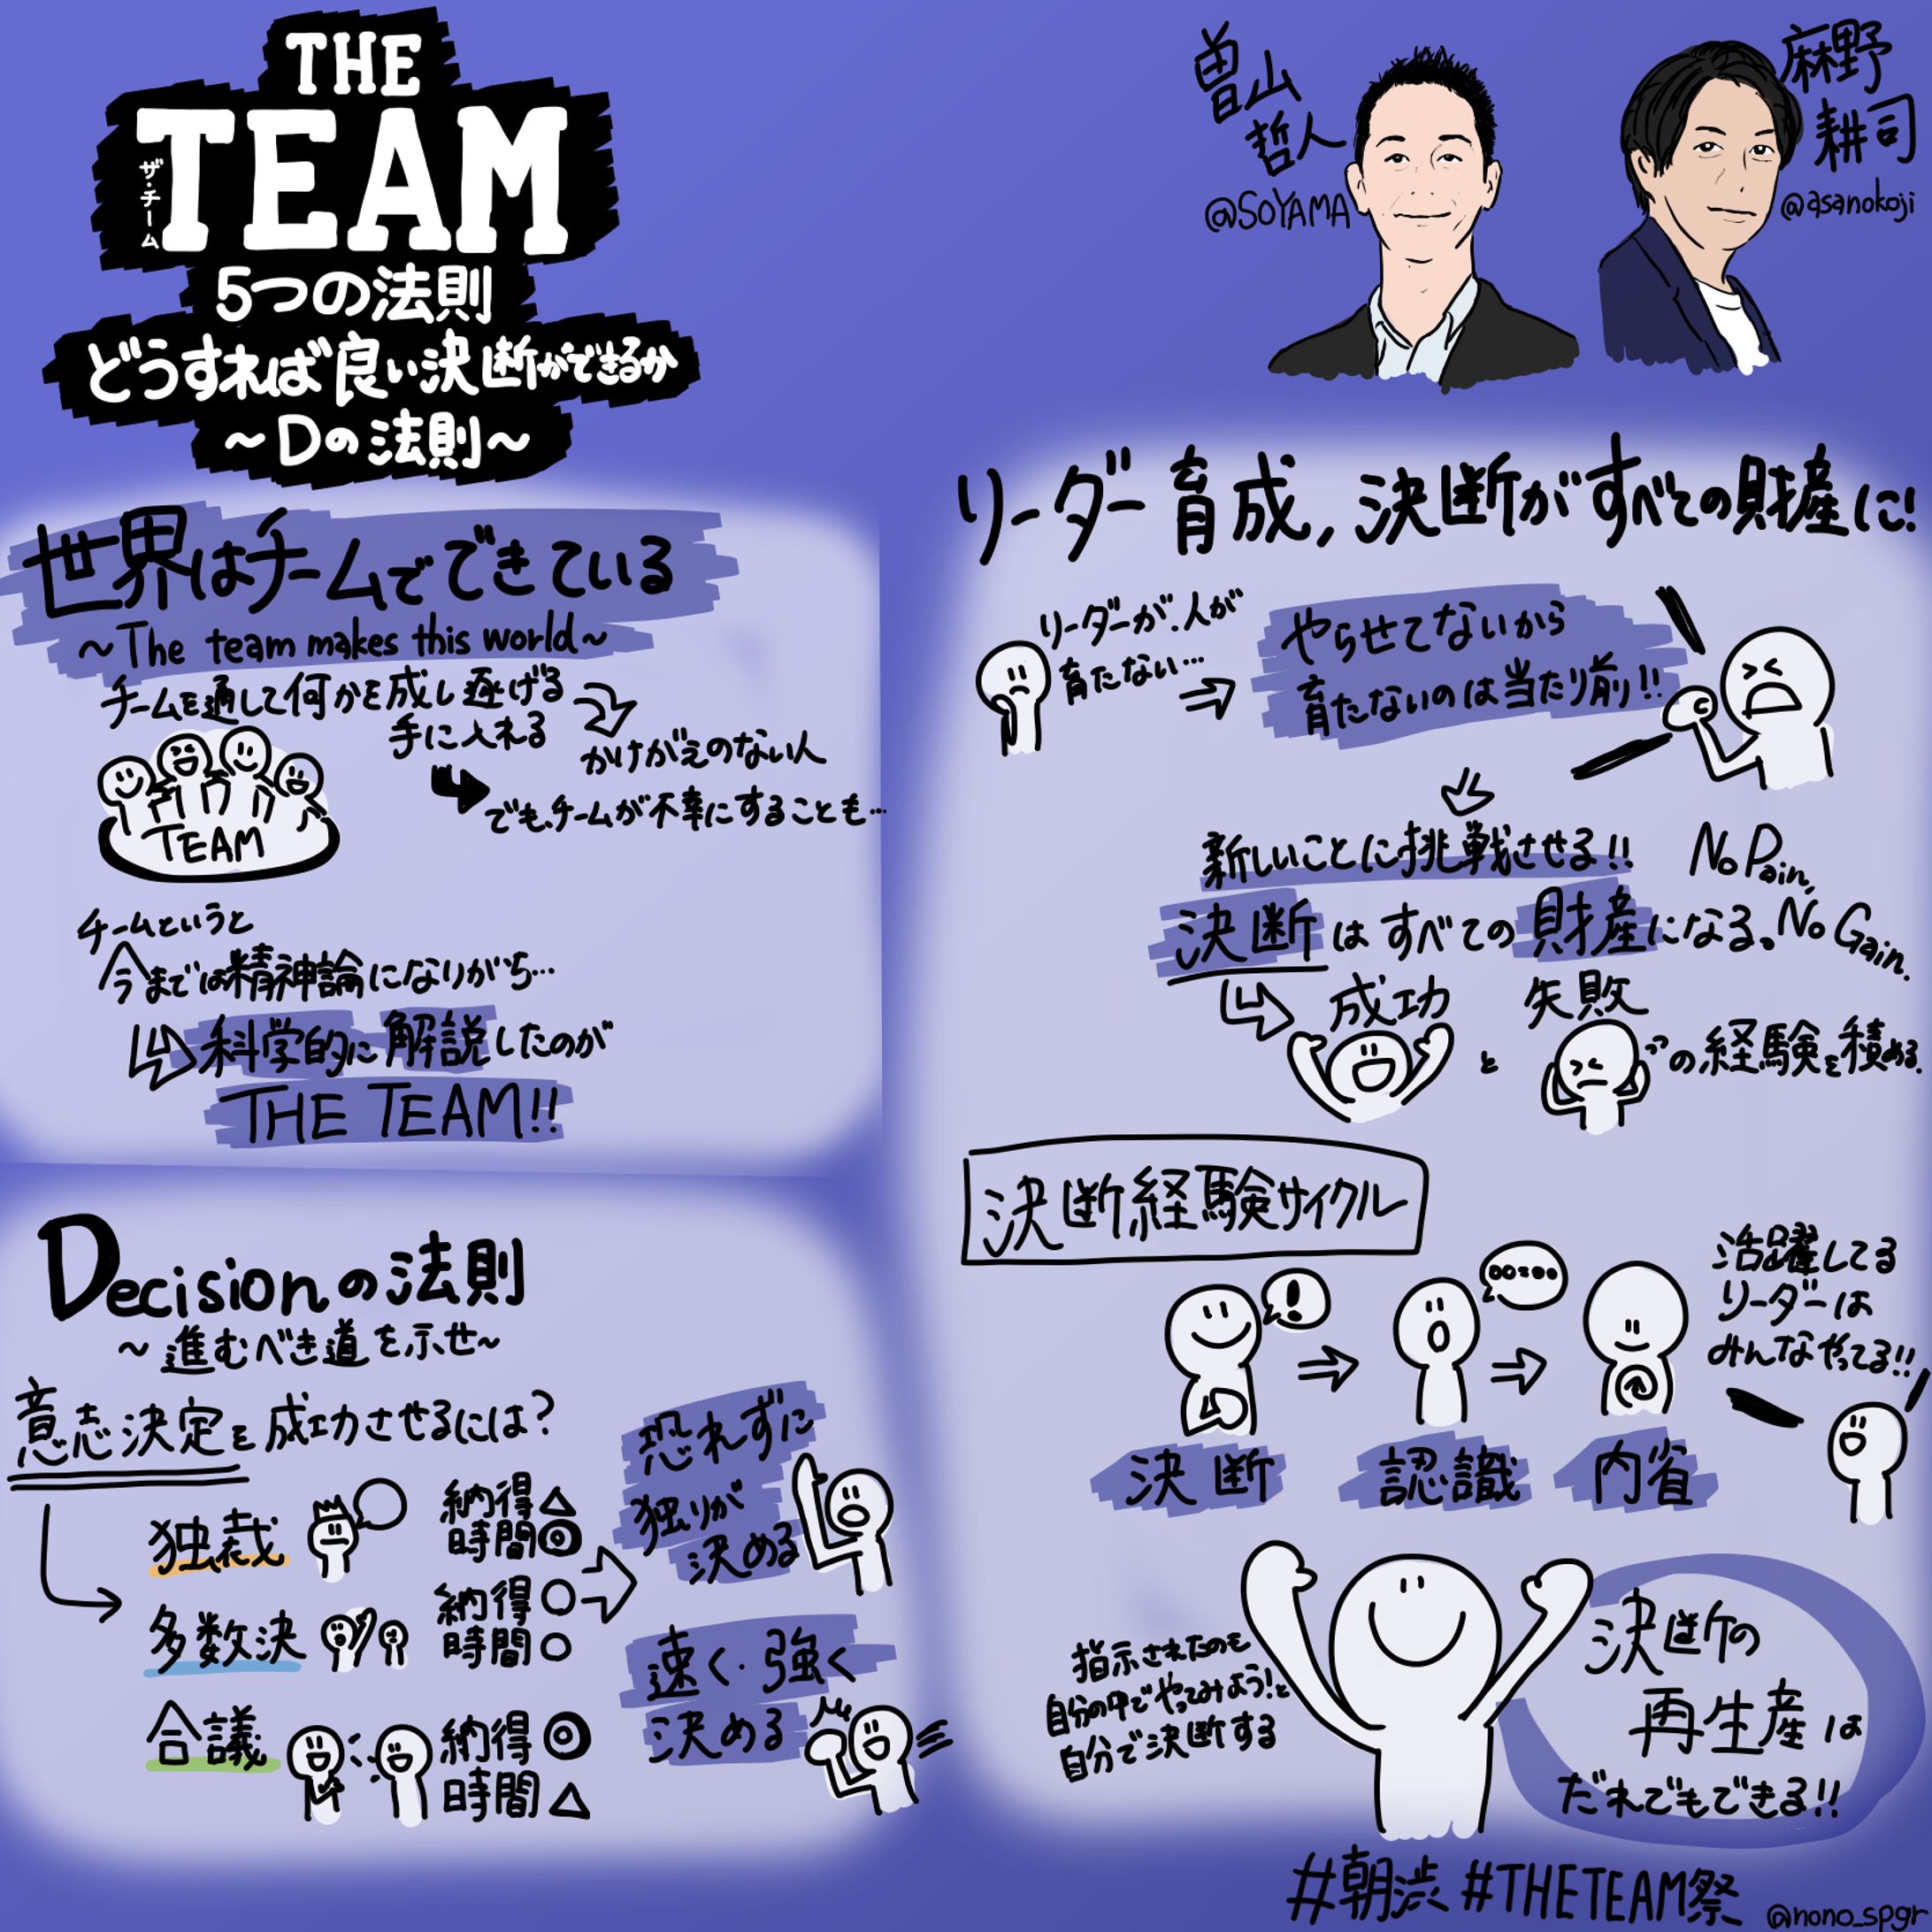 THE
TEAM
ザ・チーム
5つの法則
どうすれば良い決断ができるか
〜Dの法則〜
曽山
哲人
@SOYAMA
麻野
耕司
@asanokoji
世界はチームでできている
〜The team makes this world〜
チームを通して何かを成し遂げる
手に入れる
かけがえのない人
でも、チームが不幸にすることも…
TEAM
チームというと
今までは精神論になりがち…
科学的に解説したのが
THE TEAM!!
Decisionの法則
〜進むべき道を示せ〜
意志決定を成功させるには?
独裁
納得△
時間◎
多数決
納得○
時間○
合議
納得◎
時間△
恐れずに
独りが
決める
速く・強く
決める
リーダー育成,決断がすべての財産に!
リーダーが、人が
育たない…
やらせてないから
育たないのは当たり前!!
新しいことに挑戦させる!!
No Pain,
No Gain.
決断はすべての財産になる。
成功
と
失敗
の経験を積める.
決断経験サイクル
決断
認識
内省
活躍してる
リーダーは
みんなやってる!!
指示されたのも
自分の中でやってみよう!と
自分で決断する
決断の
再生産は
だれでもできる!!
#朝渋 #THETEAM祭
@nono_spgr